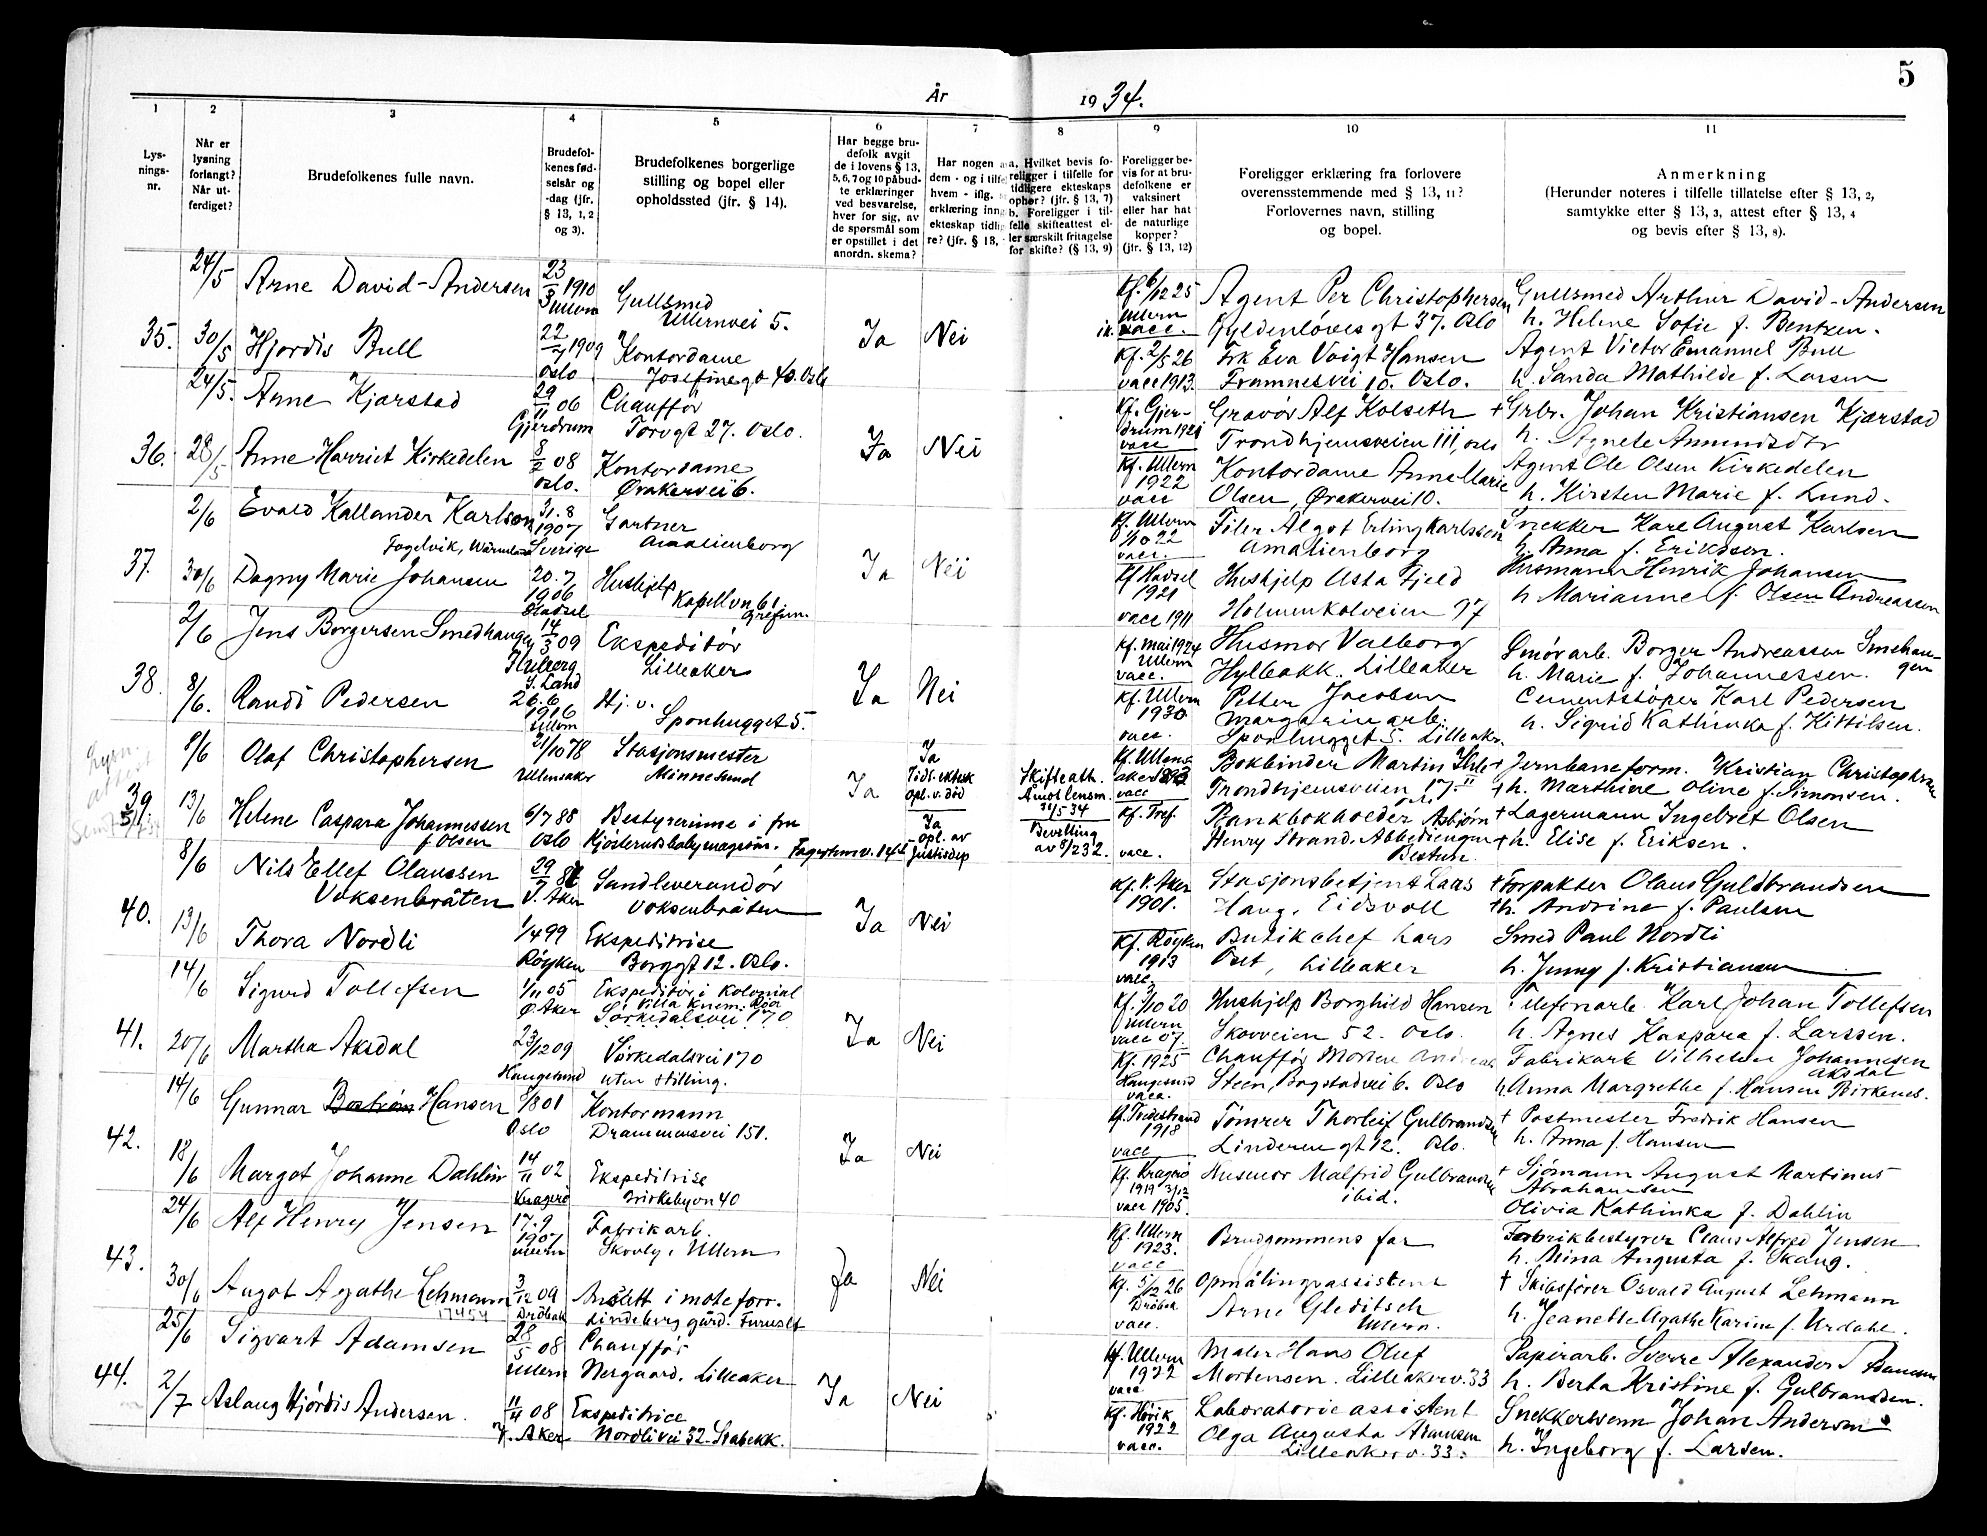 5
År 1934.
1 2 3 4 5 6 7 8 9 10 11
Lys-
nings-
nr.
Når er
lysning
forlangt?
Når ut-
ferdiget?
Brudefolkenes fulle navn.
Brudefol-
kenes fød-
selsår og
-dag (jfr.
§ 13, 1, 2
og 3).
Brudefolkenes borgerlige
stilling og bopel eller
opholdssted (jfr. § 14).
Har begge bru-
defolk avgit
de i lovens § 13,
5, 6, 7 og 10 påbud-
te erklæringer
ved besvarelse,
hver for sig, av
de spørsmål som
er opstillet i det
anordn. skema?
Har nogen a
dem - og i tilfe
hvem - iflg.
erklæring inng
ekteskap tidli
re? (jfr. § 13,
a. Hvilket bevis fo-
religger i tilfelle for
tidligere ekteskaps
ophør? (jfr. § 13, 7)
b. Foreligger i til-
felle skifteattest el-
ler særskilt fritagelse
for skifte? (§ 13, 9)
Foreligger be-
vis for at bru-
defolkene er
vaksinert
eller har hat
de naturlige
kopper?
(jfr. § 13, 12)
Foreligger erklæring fra forlovere
overensstemmende med § 13, 11?
Forlovernes navn, stilling
og bopel.
Anmerkning
(Herunder noteres i tilfelle tillatelse efter § 13, 2,
samtykke efter § 13, 3, attest efter § 13, 4
og bevis efter § 13, 8).
35.
24/5 Arne David-Andersen
23/3 1910 Ullern
Gullsmed
Ullernvei 5.
Ja Nei
Kf. 6/12 25
Ullern
vacc.
Agent Per Christophersen
Gyldenløves gt 37. Oslo
Gullsmed Arthur David-Andersen
h. Helene Sofie f. Bentzen.
30/5 Hjørdis Bull
22/7 1909
Oslo
Kontordame
Josefinegt 40. Oslo
Kf. 2/5 26
vacc 1913.
Frk Eva Voigt Hansen
Framnesvei 10. Oslo.
Agent Victor Emanuel Bull
h. Sanda Mathilde f. Larsen
36.
24/5. Arne Kjærstad
29/11 06
Gjerdrum
Chauffør
Torvgt 27. Oslo.
Ja Nei
Kf. Gjer-
drum 1921
vacc
Gravør Alf Kolseth
Trondhjemsveien 111, oslo
+ Grbr. Johan Kristiansen Kjærstad
h. Agnete Amundsdtr
28/5 Anne Harriet Kirkedelen
8/2 08
Oslo.
Kontordame
Ørakervei 6.
Kf. Ullern
1922
vacc
Kontordame Anne Marie
Olsen, Ørakervei 10.
Agent Ole Olsen Kirkedelen
h. Kirsten Marie f. Lund.
37.
2/6 Evald Kallander Karlson
Fogelvik, Wärmland
31.8
1907
Sverige
Gartner
Amalienborg
Ja Nei
Kf. Ullern
1/10 22
vacc.
Filer Algot Erling Karlsson
Amalienborg
Snekker Kare August Karlsen
h. Anna f. Eriksson.
30/6 Dagny Marie Johansen
20.7
1906
Hadsel
Hushjelp
Kapellvn 61
Grefsen.
Kf Hadsel
1921
vacc 1911
Hushjelp Asta Fjeld
Holmenkolveien 97
Husmann Henrik Johansen
h Marianne f. Olsen Andreassen
38.
2/6 Jens Borgersen Smedhaugen
14/3 09
Fluberg
S. Land
Ekspeditør
Lilleaker
Ja Nei
Kf. mai 1924
Ullern
vacc.
Husmor Valborg
Hylbakk. Lilleaker
Smørarb. Borger Andreassen Smehau-
gen
h. Marie f. Johannessen.
8/6. Randi Pedersen
26.6
1916
Ullern
Hj. v.
Sponhugget 5.
Kf. Ullern
1930
vacc.
Petter Jacobsen
margarinarb.
Sponhugget 5. Lilleaker.
Cementstøper Karl Pedersen
h. Sigrid Kathinka f. Kittilsen.
39
8/6 Olaf Christophersen
21/10 78
Ullensaker
Stasjonsmester
Minnesund
Ja
Ja
Tidl. ektesk
opl. v. død
Skifteatt.
Amot lensm.
31/5 34
Kf. Ullens-
aker 1893
vacc
Bokbinder Martin
Trondhjemsveien 17.II
+ Jernbaneform. Kristian Christophersen
h. Marthine Oline f. Simonsen.
13/6 Helene Caspara Johannessen
f. Olsen
6/7 88
Oslo
Bestyrerinne i fru
Kjøsteruds babymagasin. Fagerheimv. 14
Ja
Opl. av
Justisdep
Bevilling
av 6/2 32.
Kf. Tref.
vacc.
Bankbokholder Asbjørn
Henry Strand. Abbediengen
Bestum
+ Lagermann Ingebret Olsen
+ h. Elise f. Eriksen.
40.
8/6 Nils Ellef Olaussen
Voksenbråten
29/7 8
V. Aker
Sandleverandør
Voksenbråten
Ja Nei
Kf. V. Aker
1901.
Stasjonsbetjent Lars
Haug, Eidsvoll
+ Forpakter Olaus Guldbrandsen
+ h. Andrine f. Paulsen
13/6 Thora Nordli
1/4 99
Røyken
Ekspeditrise
Borggt 12. Oslo.
Kf. Røyken
1913
vacc.
Butikchef Lars
Ost, Lilleaker
Smed Paul Nordli
h. Jenny f. Kristiansen
41.
14/6 Sigurd Tollefsen
1/11 05
Ø. Aker
Ekspeditør i Kolonial
Villa Knem. Røa
Sørkedalsvei 170
Ja Nei
Kf. 3/10 20
Ullern
vacc 07.
Hushjelp Borghild Hansen
Skovveien 52. Oslo.
Telefonarb. Karl Johan Tollefsen
h. Agnes Kaspara f. Larssen.
20/6 Martha Aksdal
23/12 09
Haugesund
Sørkedalsvei 170
uten stilling.
Kf. 1925
Haugesund
vacc.
Chauffør Morten
Steen, Bogstadvei 6. Oslo
Fabrikarb Vilhelm Johannesen
Aksdal
h. Anna Margrethe f. Hansen Birkenes.
42.
14/6 Gunnar Boström Hansen
8/8 01
Oslo
Kontormann
Drammensvei 151.
Ja Nei
Kf. Tvedestrand
1918
vacc
Tømrer Thorleif Gulbrandsen
Linderen gt 12. Oslo.
+ Postmester Fredrik Hansen
h. Anna f. Hansen
18/6 Margot Johanne Dahlin
14/11 02
Kragerø
Ekspeditrise
Birkebyvn 40
Kf. Kragerø
1919 3/12
vacc 1905.
Husmor Malfrid Gulbrandsen
ibid.
+ Sjømann August Martinus
Abrahamsen
Olivia Kathinka f. Dahlin
43.
24/6 Alf Henry Jensen
17.9
1907
Ullern
Fabrikarb.
Skovly, Ullern
Ja Nei
Kf. Ullern
1923.
vacc
Brudgommens far
Fabrikbestyrer Claus Alfred Jensen
h. Nina Augusta f. Skaug.
30/6 Augot Agathe Lehmann
3/12 09
Drøbak
Ansatt i moteforr.
Lindeberg gård. Furuset
Kf. 5/12 26
Drøbak
vacc.
Opmålingsassistent
Arne Gleditsch
Ullern.
+ Skibsfører Osvald August Lehmann
h. Jeanette Agathe Karine f. Urdahl.
44.
25/6 Sigvart Adamsen
28/5 08
Ullern
Chauffør
Nergaard, Lilleaker
Ja Nei
Kf. Ullern
1922
vacc.
Maler Hans Oluf
Mortensen. Lilleakerv. 33
Papirarb. Sverre Alexander Adamsen
h. Berta Kristine f. Gulbrandsen.
2/7 Aslaug Hjørdis Andersen.
11/4 08
V. Aker
Ekspeditrice
Nordlivei 32. Stabekk.
Kf. Høvik
1922
vacc.
Laboratorieassistent
Olga Augusta
Lilleakerv. 33.
Snekkersvenn Johan Andersen
h. Ingeborg f. Larsen.